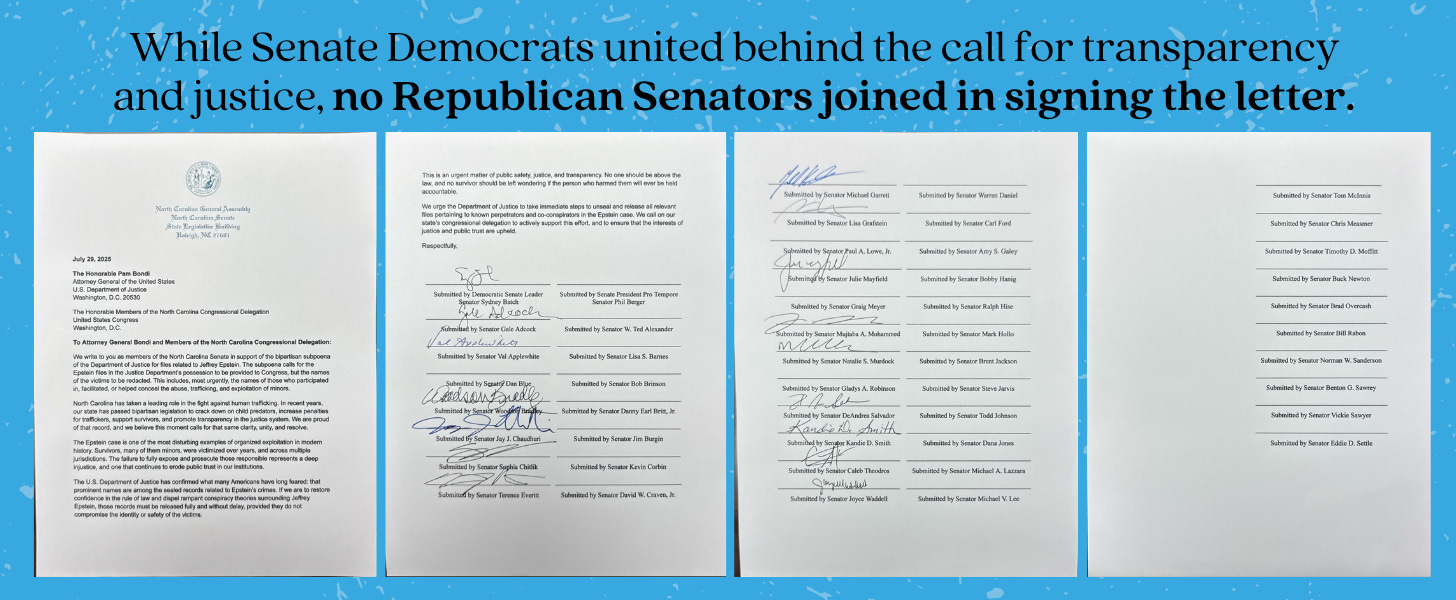 While Senate Democrats united behind the call for transparency
and justice, no Republican Senators joined in signing the letter.
North Carolina General Assembly
North Carolina Senate
State Legislative Building
Raleigh, NC 27601
July 29, 2025
The Honorable Pam Bondi
Attorney General of the United States
U.S. Department of Justice
Washington, D.C. 20530
The Honorable Members of the North Carolina Congressional Delegation
United States Congress
Washington, D.C.
To Attorney General Bondi and Members of the North Carolina Congressional Delegation:
We write to you as members of the North Carolina Senate in support of the bipartisan subpoena
of the Department of Justice for files related to Jeffrey Epstein. The subpoena calls for the
Epstein files in the Justice Department's possession to be provided to Congress, but the names
of the victims to be redacted. This includes, most urgently, the names of those who participated
in, facilitated, or helped conceal the abuse, trafficking, and exploitation of minors.
North Carolina has taken a leading role in the fight against human trafficking. In recent years,
our state has passed bipartisan legislation to crack down on child predators, increase penalties
for traffickers, support survivors, and promote transparency in the justice system. We are proud
of that record, and we believe this moment calls for that same clarity, unity, and resolve.
The Epstein case is one of the most disturbing examples of organized exploitation in modern
history. Survivors, many of them minors, were victimized over years, and across multiple
jurisdictions. The failure to fully expose and prosecute those responsible represents a deep
injustice, and one that continues to erode public trust in our institutions.
The U.S. Department of Justice has confirmed what many Americans have long feared: that
prominent names are among the sealed records related to Epstein's crimes. If we are to restore
confidence in the rule of law and dispel rampant conspiracy theories surrounding Jeffrey
Epstein, those records must be released fully and without delay, provided they do not
compromise the identity or safety of the victims.
This is an urgent matter of public safety, justice, and transparency. No one should be above the
law, and no survivor should be left wondering if the person who harmed them will ever be held
accountable.
We urge the Department of Justice to take immediate steps to unseal and release all relevant
files pertaining to known perpetrators and co-conspirators in the Epstein case. We call on our
state's congressional delegation to actively support this effort, and to ensure that the interests of
justice and public trust are upheld.
Respectfully,
Submitted by Democratic Senate Leader
Senator Sydney Batch
Submitted by Senate President Pro Tempore
Senator Phil Berger
Gale Adcock
Submitted by Senator Gale Adcock
Submitted by Senator W. Ted Alexander
Val Applewhite
Submitted by Senator Val Applewhite
Submitted by Senator Lisa S. Barnes
Submitted by Senator Dan Blue
Submitted by Senator Bob Brinson
Woodson Bradley
Submitted by Senator Woodson Bradley
Submitted by Senator Danny Earl Britt, Jr.
Submitted by Senator Jay J. Chaudhuri
Submitted by Senator Jim Burgin
Submitted by Senator Sophia Chitlik
Submitted by Senator Kevin Corbin
Submitted by Senator Terence Everitt
Submitted by Senator David W. Craven, Jr.
Submitted by Senator Michael Garrett
Submitted by Senator Warren Daniel
Submitted by Senator Lisa Grafstein
Submitted by Senator Carl Ford
Submitted by Senator Paul A. Lowe, Jr.
Submitted by Senator Amy S. Galey
Submitted by Senator Julie Mayfield
Submitted by Senator Bobby Hanig
Submitted by Senator Graig Meyer
Submitted by Senator Ralph Hise
Submitted by Senator Mujtaba A. Mohammed
Submitted by Senator Mark Hollo
Submitted by Senator Natalie S. Murdock
Submitted by Senator Brent Jackson
Submitted by Senator Gladys A. Robinson
Submitted by Senator Steve Jarvis
Submitted by Senator DeAndrea Salvador
Submitted by Senator Todd Johnson
Kandie D. Smith
Submitted by Senator Kandie D. Smith
Submitted by Senator Dana Jones
Submitted by Senator Caleb Theodros
Submitted by Senator Michael A. Lazzara
Submitted by Senator Joyce Waddell
Submitted by Senator Michael V. Lee
Submitted by Senator Tom McInnis
Submitted by Senator Chris Measmer
Submitted by Senator Timothy D. Moffitt
Submitted by Senator Buck Newton
Submitted by Senator Brad Overcash
Submitted by Senator Bill Rabon
Submitted by Senator Norman W. Sanderson
Submitted by Senator Benton G. Sawrey
Submitted by Senator Vickie Sawyer
Submitted by Senator Eddie D. Settle